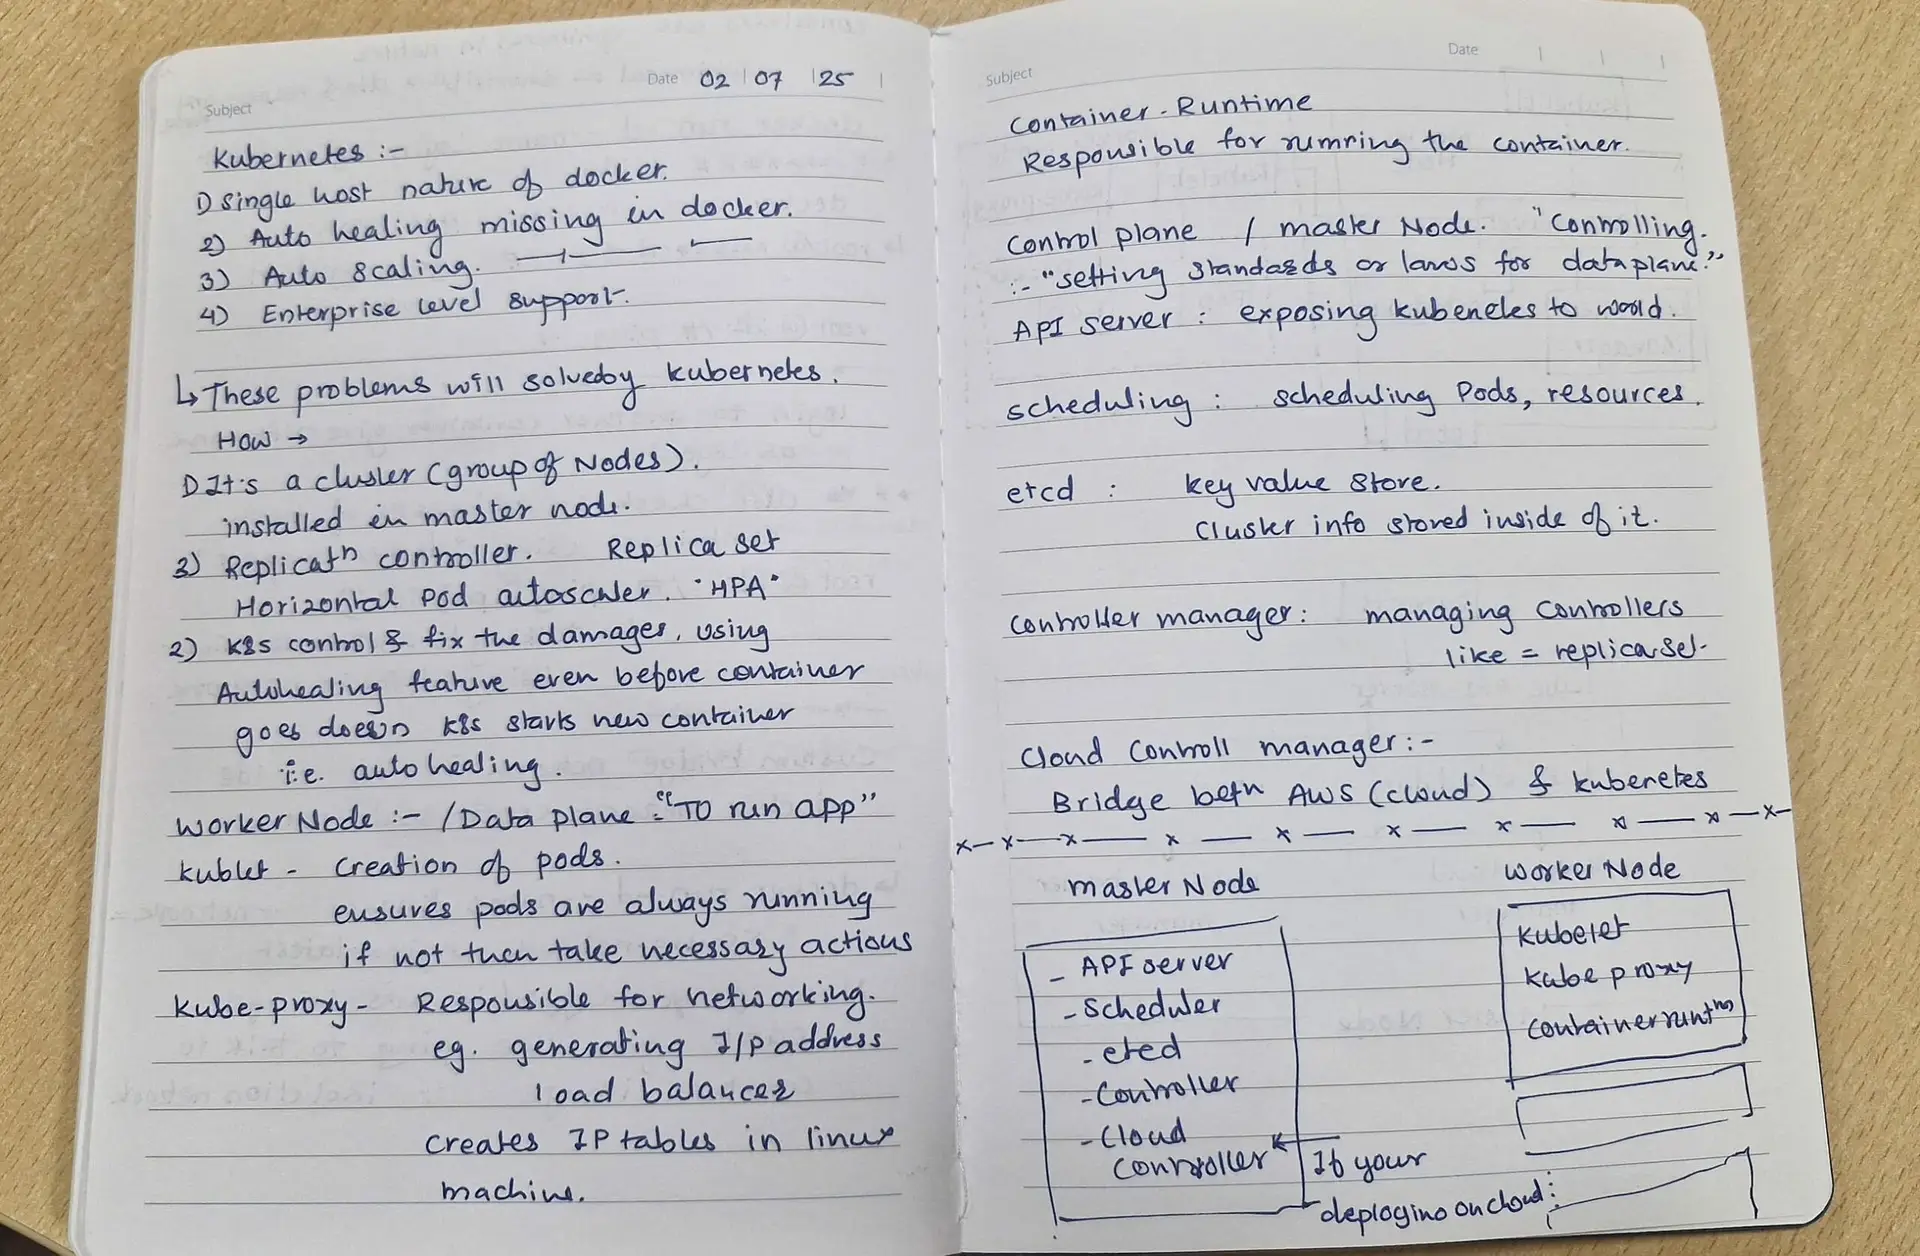 Subject
Date 02 | 07 | 25 |
Kubernetes :-
1) Single host nature of docker.
2) Auto healing missing in docker.
3) Auto scaling.
4) Enterprise level support.
↳ These problems will solvedby kubernetes.
How →
1) It's a cluster (group of Nodes).
installed in master node.
3) Replicatn controller. Replica set
Horizontal Pod autoscaler. "HPA"
2) K8s control & fix the damages, using
Autohealing feature even before container
goes down K8s starts new container
i.e. auto healing.
Worker Node :- / Data plane - "To run app"
kublet - Creation of pods.
ensures pods are always running
if not then take necessary actions
Kube-proxy - Responsible for networking.
eg. generating I/P address
load balancer
creates IP tables in linux
machine.
Subject
Date | | |
Container-Runtime
Responsible for running the container.
Control plane / master Node. "Controlling.
:- "setting standards or laws for dataplane."
API server : exposing kubeneles to world.
scheduling : scheduling Pods, resources.
etcd : key value store.
Cluster info stored inside of it.
controller manager : managing controllers
like = replica set.
Cloud Controll manager :-
Bridge betn AWS (cloud) & kubenetes
x—x—x—x—x—x—x—x—x—x—
master Node
Worker Node
- API server
- Scheduler
- etcd
- Controller
- Cloud
controller
If your
deploging on cloud :
Kubelet
Kube proxy
container runtm